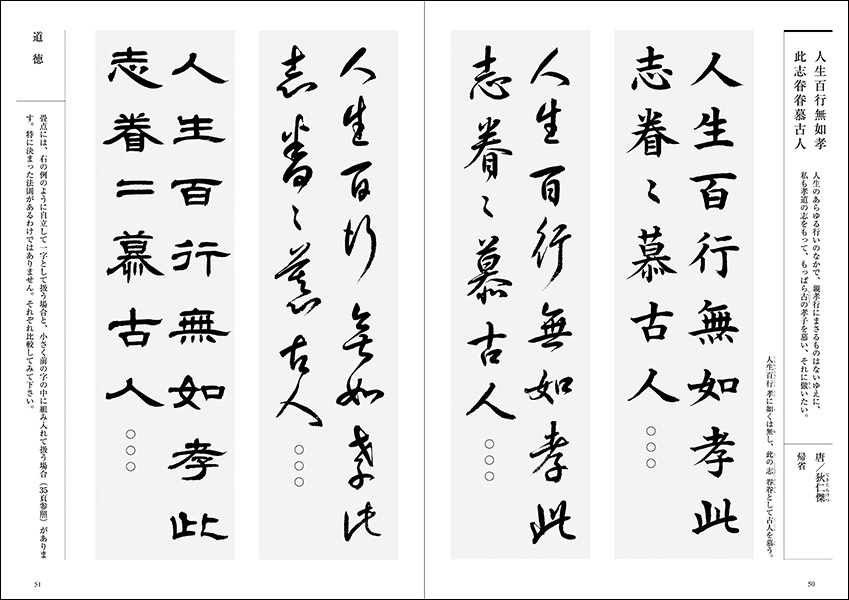 人生百行無如孝
此志眷眷慕古人
人生のあらゆる行いのなかで、親孝行にまさるものはないゆえに、
私も孝道の志をもって、もっぱら古の孝子を慕い、それに倣いたい。
唐／狄仁傑
てきじんけつ
帰省
人生百行 孝に如くは無し、此の志 眷眷として古人を慕う。
人生百行無如孝此
志眷〻慕古人
○○○
人生百行無如孝此
志眷〻慕古人
○○○
50
人生百行無如孝此
志眷〻慕古人
○○○
人生百行無如孝此
志眷〻慕古人
○○○
道徳
畳点には、右の例のように自立して一字として扱う場合と、小さく前の字の中に組み入れて扱う場合（35頁参照）がありま
す。特に決まった法則があるわけではありません。それぞれ比較してみて下さい。
51